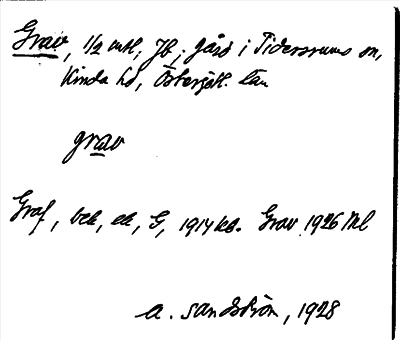 Grav, 1/2 mtl, Jb, gård i Tidersrums sn,
Kinda hd, Östergötl. län
grav
Graf, bek, ek, G, 1914 kb. Grav 1926 Ml
A. Sandström, 1928